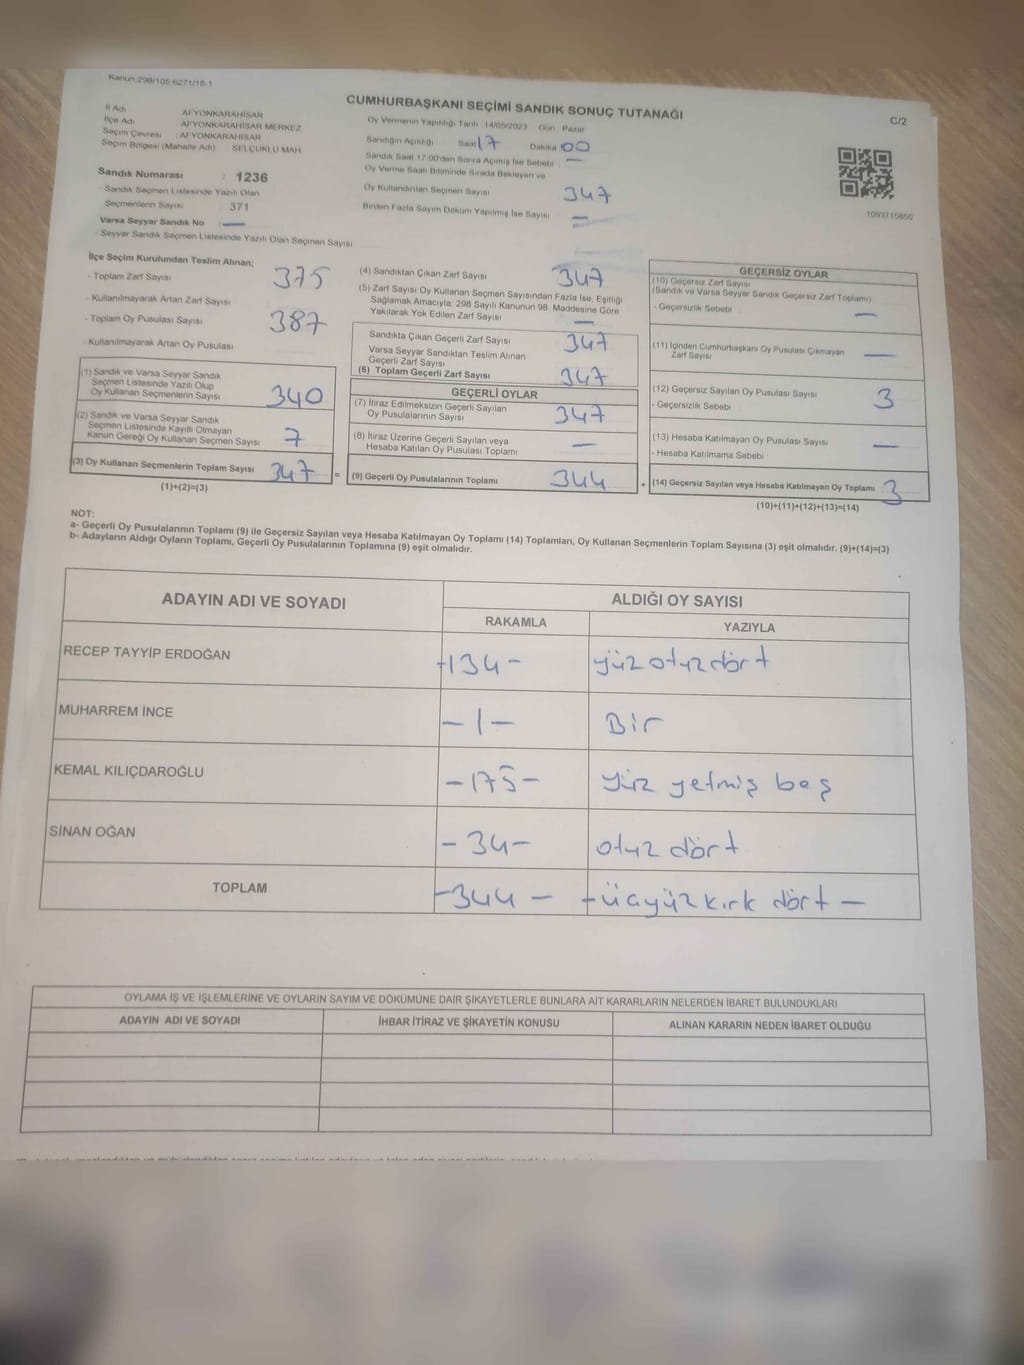 Kanun:298/105;6271/18-1
CUMHURBAŞKANI SEÇİMİ SANDIK SONUÇ TUTANAĞI
C/2
İl Adı : AFYONKARAHİSAR
İlçe Adı : AFYONKARAHİSAR MERKEZ
Seçim Çevresi : AFYONKARAHİSAR
Seçim Bölgesi (Mahalle Adı) : SELÇUKLU MAH.
Oy Vermenin Yapıldığı Tarih : 14/05/2023 Gün : Pazar
Sandığın Açıldığı Saat 17 Dakika 00
Sandık Saat 17:00'den Sonra Açılmış İse Sebebi : —
Oy Verme Saati Bitiminde Sırada Bekleyen ve
Oy Kullandırılan Seçmen Sayısı 347
Birden Fazla Sayım Döküm Yapılmış İse Sayısı —
1093715850
Sandık Numarası : 1236
- Sandık Seçmen Listesinde Yazılı Olan
Seçmenlerin Sayısı : 371
Varsa Seyyar Sandık No : —
- Seyyar Sandık Seçmen Listesinde Yazılı Olan Seçmen Sayısı
İlçe Seçim Kurulundan Teslim Alınan;
- Toplam Zarf Sayısı 375
- Kullanılmayarak Artan Zarf Sayısı
- Toplam Oy Pusulası Sayısı 387
- Kullanılmayarak Artan Oy Pusulası
(1) Sandık ve Varsa Seyyar Sandık
Seçmen Listesinde Yazılı Olup
Oy Kullanan Seçmenlerin Sayısı 340
(2) Sandık ve Varsa Seyyar Sandık
Seçmen Listesinde Kayıtlı Olmayan
Kanun Gereği Oy Kullanan Seçmen Sayısı 7
(3) Oy Kullanan Seçmenlerin Toplam Sayısı 347 =
(1)+(2)=(3)
(4) Sandıktan Çıkan Zarf Sayısı 347
(5) Zarf Sayısı Oy Kullanan Seçmen Sayısından Fazla İse, Eşitliği
Sağlamak Amacıyla; 298 Sayılı Kanunun 98. Maddesine Göre
Yakılarak Yok Edilen Zarf Sayısı —
Sandıkta Çıkan Geçerli Zarf Sayısı 347
Varsa Seyyar Sandıktan Teslim Alınan
Geçerli Zarf Sayısı
(6) Toplam Geçerli Zarf Sayısı 347
GEÇERLİ OYLAR
(7) İtiraz Edilmeksizin Geçerli Sayılan
Oy Pusulalarının Sayısı 347
(8) İtiraz Üzerine Geçerli Sayılan veya
Hesaba Katılan Oy Pusulası Toplamı —
(9) Geçerli Oy Pusulalarının Toplamı 344 +
GEÇERSİZ OYLAR
(10) Geçersiz Zarf Sayısı
(Sandık ve Varsa Seyyar Sandık Geçersiz Zarf Toplamı)
- Geçersizlik Sebebi —
(11) İçinden Cumhurbaşkanı Oy Pusulası Çıkmayan
Zarf Sayısı —
(12) Geçersiz Sayılan Oy Pusulası Sayısı 3
- Geçersizlik Sebebi
(13) Hesaba Katılmayan Oy Pusulası Sayısı —
- Hesaba Katılmama Sebebi
(14) Geçersiz Sayılan veya Hesaba Katılmayan Oy Toplamı 3
(10)+(11)+(12)+(13)=(14)
NOT:
a- Geçerli Oy Pusulalarının Toplamı (9) ile Geçersiz Sayılan veya Hesaba Katılmayan Oy Toplamı (14) Toplamları, Oy Kullanan Seçmenlerin Toplam Sayısına (3) eşit olmalıdır. (9)+(14)=(3)
b- Adayların Aldığı Oyların Toplamı, Geçerli Oy Pusulalarının Toplamına (9) eşit olmalıdır.
ADAYIN ADI VE SOYADI ALDIĞI OY SAYISI
RAKAMLA YAZIYLA
RECEP TAYYİP ERDOĞAN -134- yüz otuz dört
MUHARREM İNCE -1- Bir
KEMAL KILIÇDAROĞLU -175- yüz yetmiş beş
SİNAN OĞAN -34- otuz dört
TOPLAM -344- -üçyüz kırk dört-
OYLAMA İŞ VE İŞLEMLERİNE VE OYLARIN SAYIM VE DÖKÜMÜNE DAİR ŞİKAYETLERLE BUNLARA AİT KARARLARIN NELERDEN İBARET BULUNDUKLARI
ADAYIN ADI VE SOYADI İHBAR İTİRAZ VE ŞİKAYETİN KONUSU ALINAN KARARIN NEDEN İBARET OLDUĞU